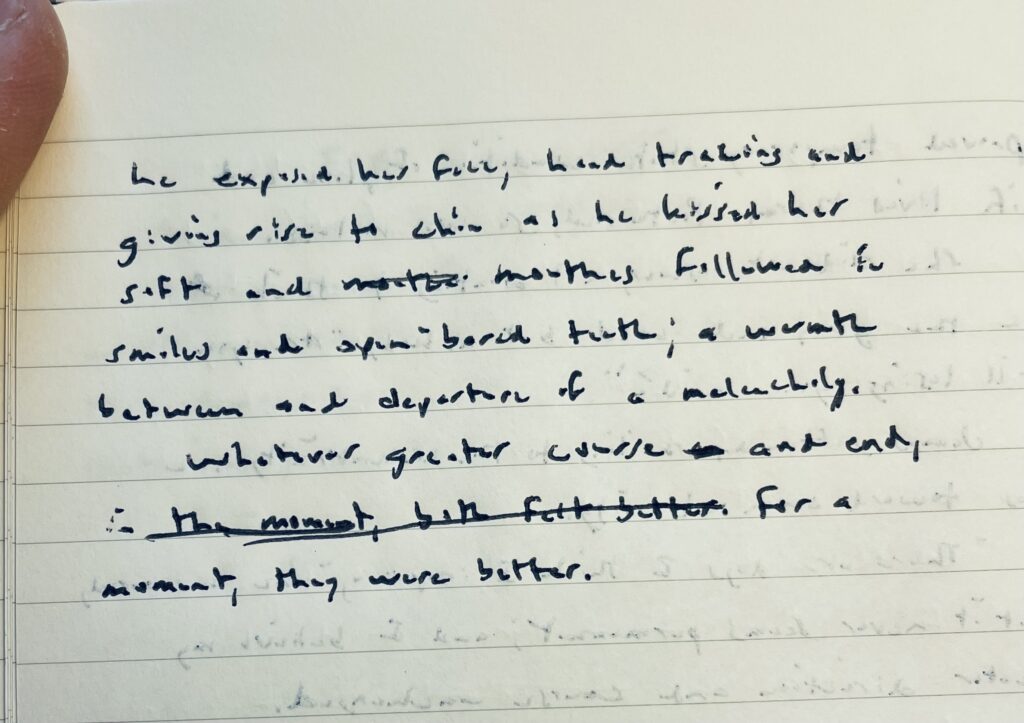 he exposed her face, hand trailing and
giving rise to chin as he kissed her
soft and mouths mouthes followed in
smiles and open bared teeth; a warmth
between and departure of a melancholy.
Whatever greater course and end,
in the moment, both felt better. For a
moment, they were better.